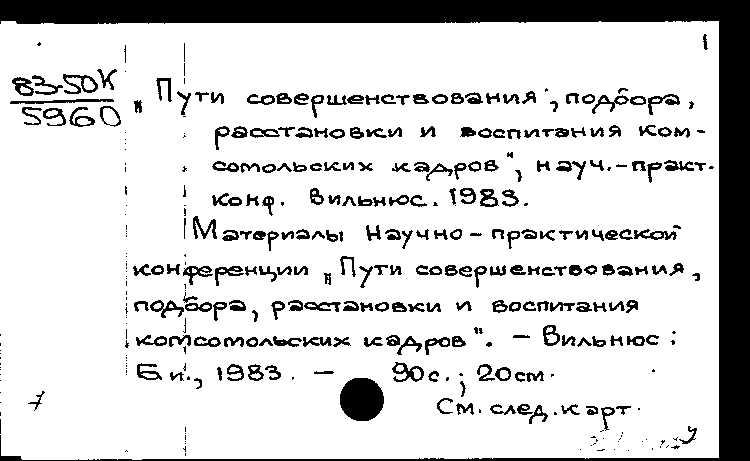 1
83-50К
5960
„Пути совершенствования, подбора,
расстановки и воспитания ком-
сомольских кадров", науч.-практ.
конф. Вильнюс. 1983.
Материалы научно-практической
конференции „Пути совершенствования,
подбора, расстановки и воспитания
комсомольских кадров". – Вильнюс :
Б.и., 1983. – 90с.; 20см.
См. след. карт.